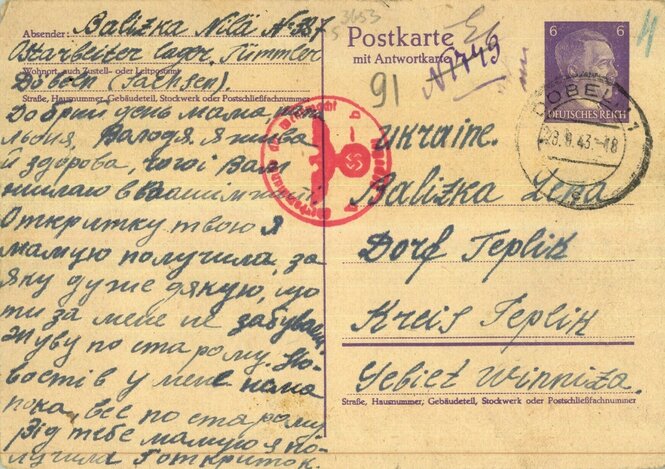 Absender: Balizka Nili № 387
Ostarbeiter Lager, Tümmler
Wohnort, auch Zustell- oder Leitpostamt
Döbeln (Sachsen).
Straße, Hausnummer, Gebäudeteil, Stockwerk oder Postschließfachnummer
Добрий день мама, папа
Володя. Я жива
й здорова, чого і Вам
в Вашім житті
Откритку твою я
мамую получила, за
яку дуже дякую, що
ти за мене не забуваєш.
Живу по старому. Но-
востів у мене нема
пока, все по старому
Від тебе мамую я по-
лучила 7 открыток.
3653
Postkarte
mit Antwortkarte
91
№1449
6 6
DEUTSCHES REICH
DÖBELN 1
-18
Ukraine.
Balizka Lena
Dorf Teplik
Kreis Teplik
Gebiet Winniza.
Straße, Hausnummer, Gebäudeteil, Stockwerk oder Postschließfachnummer